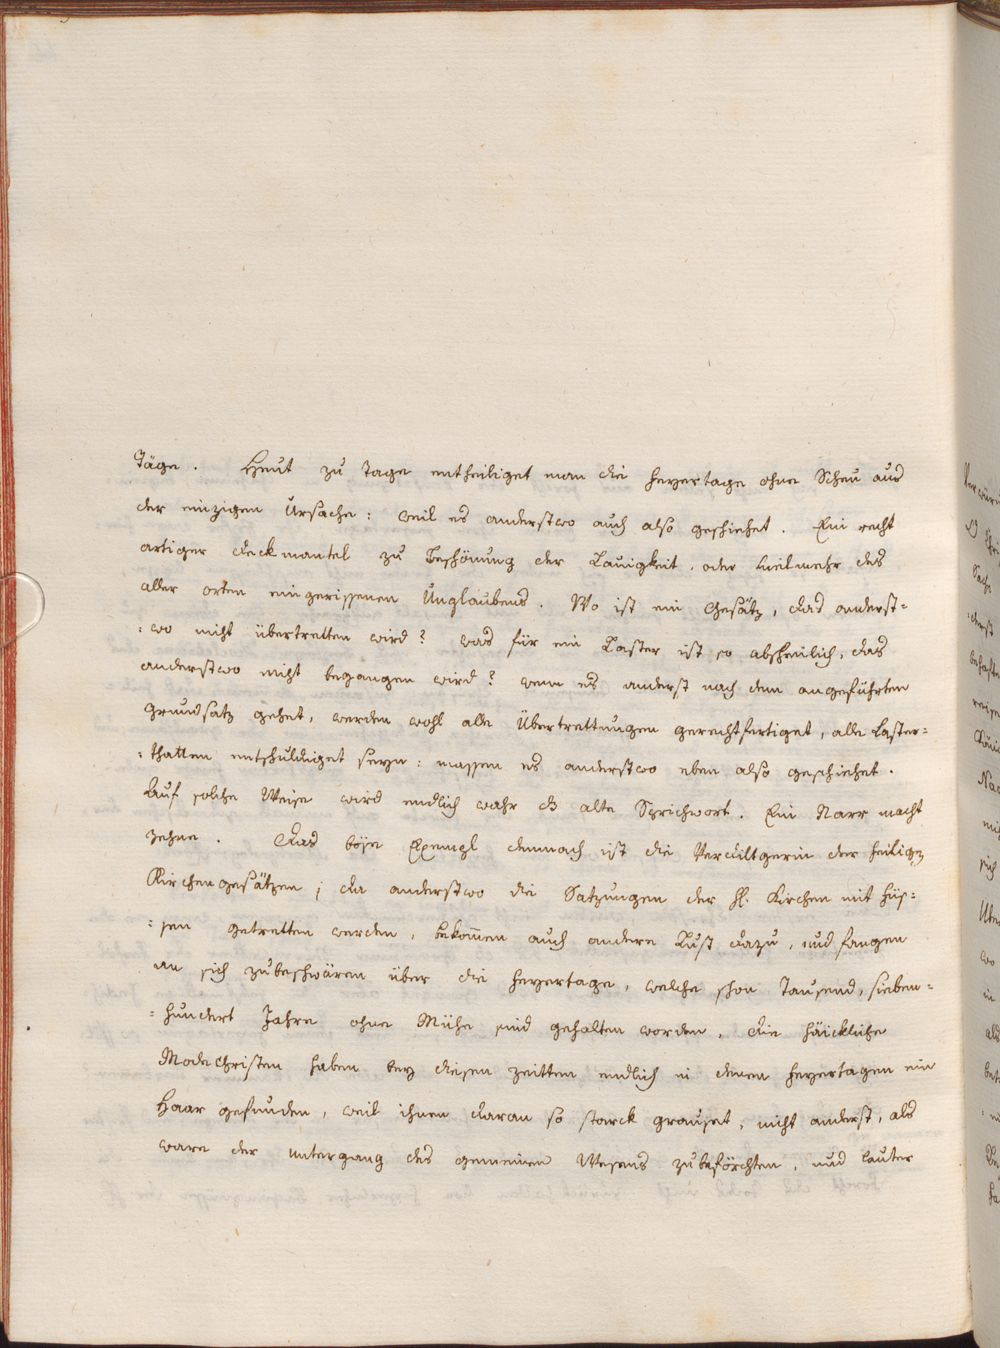 Täge. Heut zu Tage entheiliget man die Feyertage ohne Scheu aus
der einzigen Ursache: weil es anderstwo auch also geschiehet. Ein recht
artiger deckmantel zu Beschönung der Lauigkeit, oder vielmehr des
aller orten eingerissenen Unglaubens. Wo ist ein Gesätz, das anderst=
:wo nicht übertretten wird? was für ein Laster ist so abscheulich, das
anderstwo nicht begangen wird? wenn es anderst nach dem angeführten
Grundsatz gehet, werden wohl alle Übertrettungen gerechtfertiget, alle Laster=
:thatten entschuldiget seyn: massen es anderstwo eben also geschiehet.
Auf solche Weise wird endlich wahr d alte Sprichwort. Ein Narr macht
zehne. Das böse Exempl demnach ist die Vertilgerin der heilign
Kirchengesätzen; da anderstwo die Satzungen der hl. Kirchen mit Füs=
:sen getretten werden, bekom̄en auch andere Lust dazu, und fangen
an sich zubeschwären über die Feyertage, welche schon Tausend, sieben=
:hundert Jahre ohne Mühe sind gehalten worden. die häickliche
Modechristen haben bey diesen zeitten endlich in denen Feyertagen ein
Haar gefunden, weil ihnen daran so starck grauset, nicht anderst, als
ware der untergang des gemeinen Wesens zubeförchten, und lauter